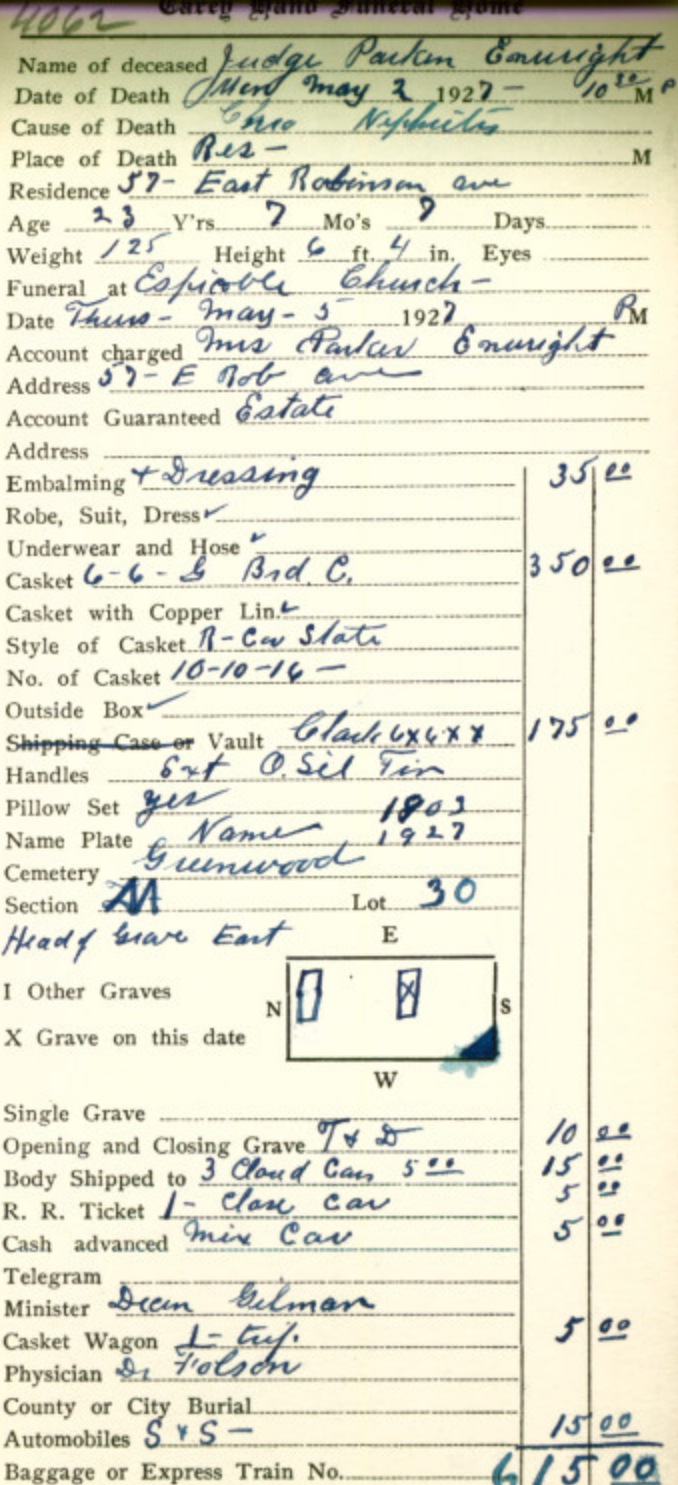 4062
Carey Hand Funeral Home
Name of deceased Judge Parken Enwright
Date of Death Mon May 2 1927 - 10 30 M P
Cause of Death Chro Nephritis
Place of Death Res - M
Residence 57 - East Robinson ave
Age 23 Y'rs 7 Mo's 7 Days
Weight 125 Height 6 ft. 4 in. Eyes
Funeral at Espicoble Church -
Date Thurs - May - 5 1927 P M
Account charged Mrs Parker Enwright
Address 57 - E Rob ave
Account Guaranteed Estate
Address
Embalming + Dressing 35 00
Robe, Suit, Dress ✓
Underwear and Hose ✓
Casket 6-6- G Brd. C. 350 00
Casket with Copper Lin. ✓
Style of Casket R- Cov State
No. of Casket 10-10-16 -
Outside Box ✓
Shipping Case or Vault Clark 6x6xx 175 00
Handles Ext O. Sil Tin
Pillow Set yes 1803
Name Plate Name 1927
Cemetery Greenwood
Section M Lot 30
Head of Grave East E
I Other Graves
N X S
X Grave on this date
W
Single Grave
Opening and Closing Grave T & D 10 00
Body Shipped to 3 Cloud Cars 5 00 15 00
R. R. Ticket 1 - Close Car 5 00
Cash advanced Mix Car 5 00
Telegram
Minister Dean Gilman
Casket Wagon 1 - trip. 5 00
Physician Dr Folson
County or City Burial
Automobiles S & S - 15 00
Baggage or Express Train No. 615 00